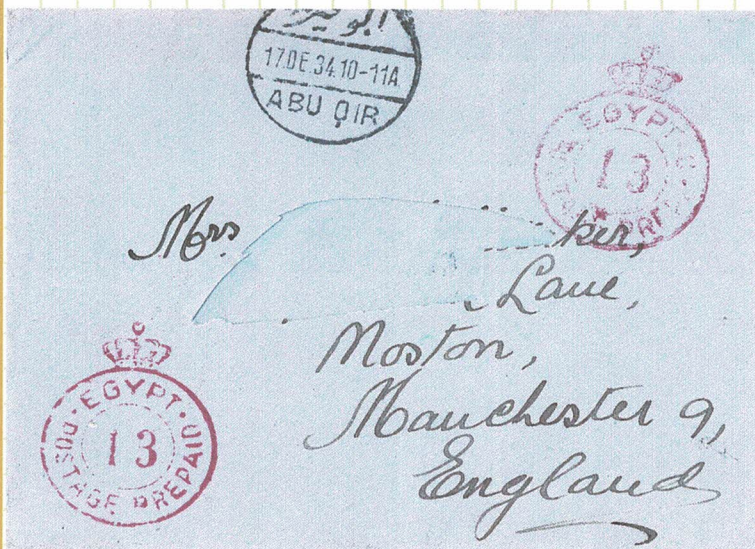 أبو قير
17.DE.34.10-11A
ABU QIR
EGYPT
13
Mrs
ker,
Lane,
Moston,
Manchester 9,
England
EGYPT
13
POSTAGE PREPAID